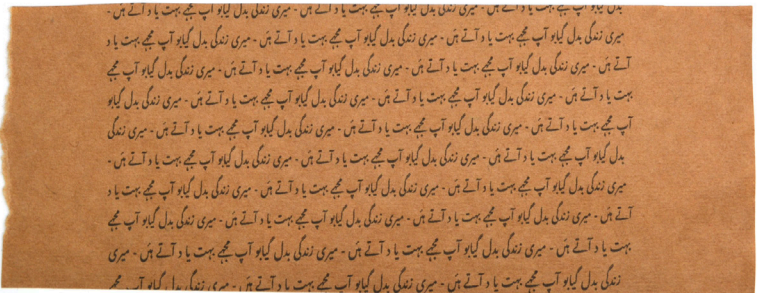 بدل گیابو آپ مجھے بہت یا د آتے ہںَ - میری زندگی بدل گیابو آپ مجھے بہت یا د آتے ہںَ - میری زندگی بدل گیابو آپ مجھے بہت یا د آتے ہںَ -
میری زندگی بدل گیابو آپ مجھے بہت یا د آتے ہںَ - میری زندگی بدل گیابو آپ مجھے بہت یا د آتے ہںَ - میری زندگی بدل گیابو آپ مجھے بہت یا د
آتے ہںَ - میری زندگی بدل گیابو آپ مجھے بہت یا د آتے ہںَ - میری زندگی بدل گیابو آپ مجھے بہت یا د آتے ہںَ - میری زندگی بدل گیابو آپ مجھے
بہت یا د آتے ہںَ - میری زندگی بدل گیابو آپ مجھے بہت یا د آتے ہںَ - میری زندگی بدل گیابو آپ مجھے بہت یا د آتے ہںَ - میری زندگی بدل گیابو
آپ مجھے بہت یا د آتے ہںَ - میری زندگی بدل گیابو آپ مجھے بہت یا د آتے ہںَ - میری زندگی بدل گیابو آپ مجھے بہت یا د آتے ہںَ - میری زندگی
بدل گیابو آپ مجھے بہت یا د آتے ہںَ - میری زندگی بدل گیابو آپ مجھے بہت یا د آتے ہںَ - میری زندگی بدل گیابو آپ مجھے بہت یا د آتے ہںَ -
میری زندگی بدل گیابو آپ مجھے بہت یا د آتے ہںَ - میری زندگی بدل گیابو آپ مجھے بہت یا د آتے ہںَ - میری زندگی بدل گیابو آپ مجھے بہت یا د
آتے ہںَ - میری زندگی بدل گیابو آپ مجھے بہت یا د آتے ہںَ - میری زندگی بدل گیابو آپ مجھے بہت یا د آتے ہںَ - میری زندگی بدل گیابو آپ مجھے
بہت یا د آتے ہںَ - میری زندگی بدل گیابو آپ مجھے بہت یا د آتے ہںَ - میری زندگی بدل گیابو آپ مجھے بہت یا د آتے ہںَ - میری
زندگی بدل گیابو آپ مجھے بہت یا د آتے ہںَ - میری زندگی بدل گیابو آپ مجھے بہت یا د آتے ہںَ - میری زندگی بدل گیابو آپ مجھے